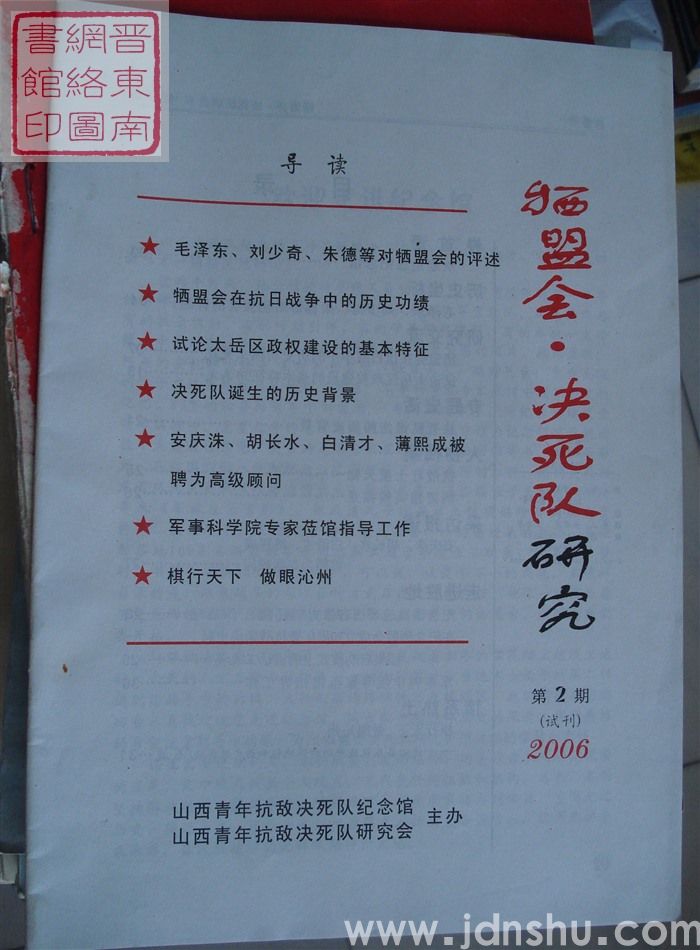 晋东南
網絡圖
書館印
导 读
★ 毛泽东、刘少奇、朱德等对牺盟会的评述
★ 牺盟会在抗日战争中的历史功绩
★ 试论太岳区政权建设的基本特征
★ 决死队诞生的历史背景
★ 安庆洙、胡长水、白清才、薄熙成被
聘为高级顾问
★ 军事科学院专家莅馆指导工作
★ 棋行天下 做眼沁州
牺盟会·决死队研究
第2期
(试刊)
2006
山西青年抗敌决死队纪念馆
山西青年抗敌决死队研究会
主办
www.jdnshu.com